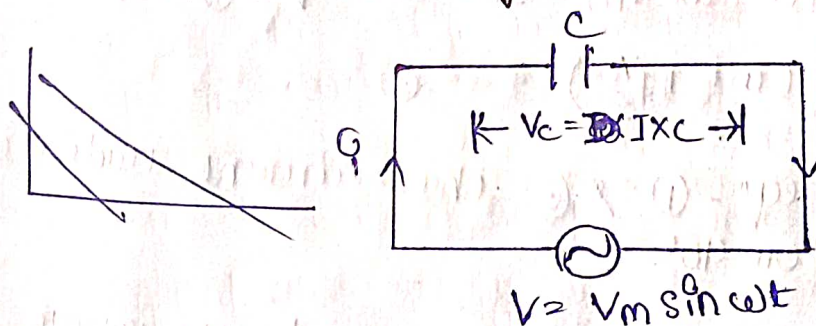 C
Vc = I X C
i
V = Vm sin ωt